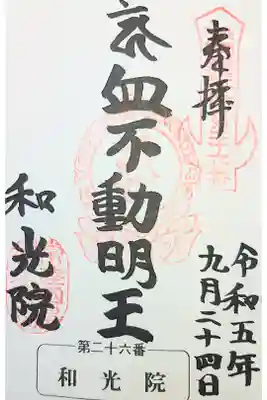 奉拝
令和五年
九月二十四日
血不動明王
和光院
第二十六番
和光院